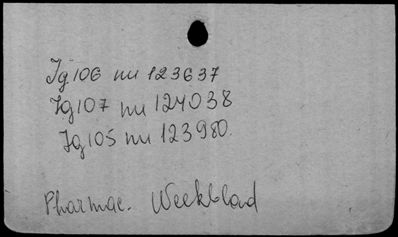 Jg 106 nu 123637
Jg 107 nu 124038
Jg 105 nu 123980.
Pharmac. Weekblad